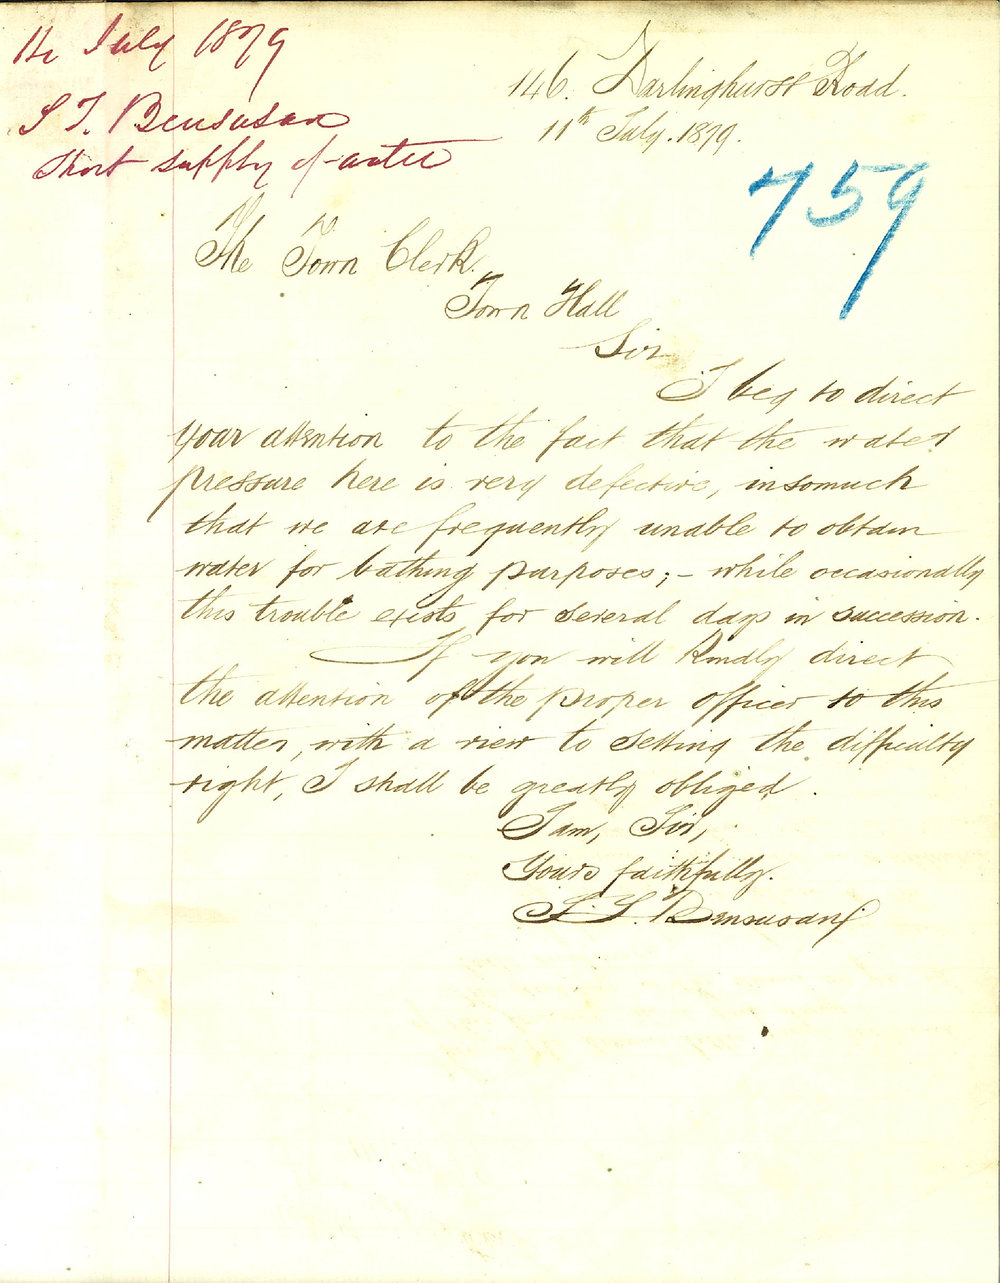 14 July 1879
S T. Bensusan
Short supply of water
146. Darlinghurst Road.
11th July. 1879.
759
The Town Clerk.
Town Hall
Sir
I beg to direct
your attention to the fact that the water
pressure here is very defective, insomuch
that we are frequently unable to obtain
water for bathing purposes; - while occasionally
this trouble exists for several days in succession.
If you will kindly direct
the attention of the proper officer to this
matter, with a view to setting the difficulty
right, I shall be greatly obliged.
I am, Sir,
Yours faithfully.
S. L. Bensusan